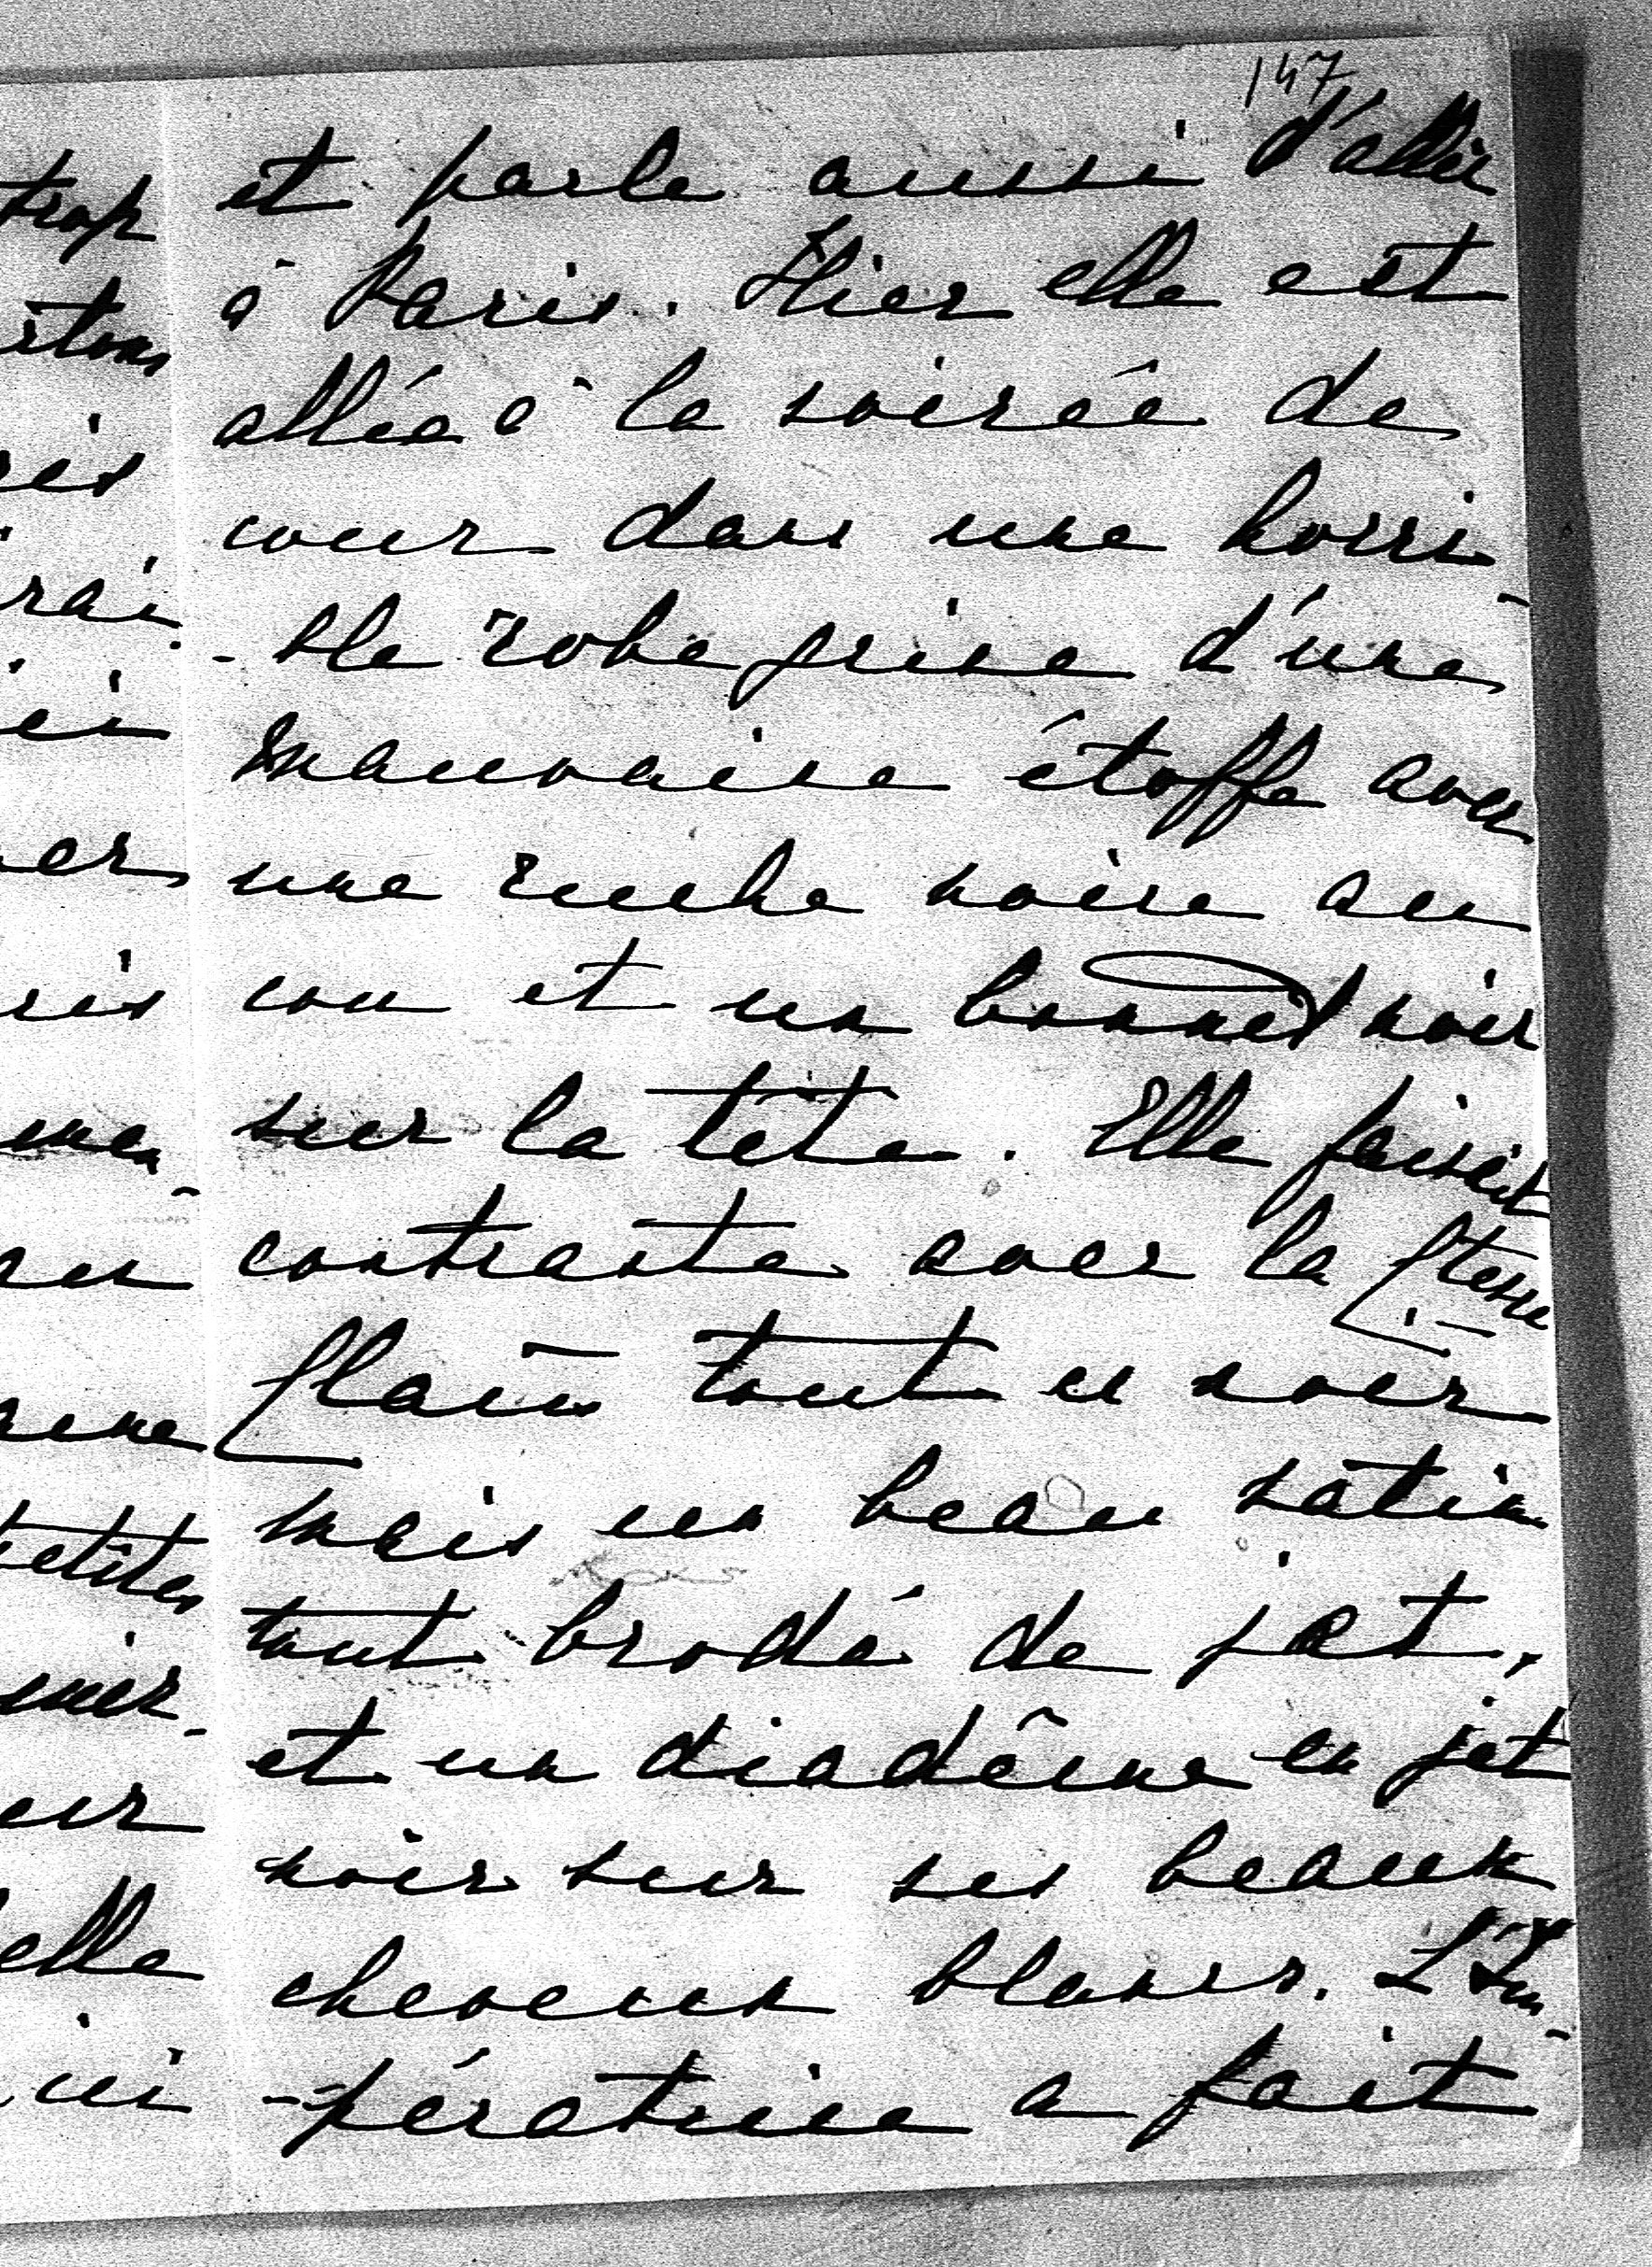 147
et parle aussi d'aller
à Paris. Hier elle est
allée à la soirée de
cour dans une horri-
-ble robe grise d'une
mauvaise étoffe avec
une ruche noire au
cou et un bonnet noir
sur la tête. Elle faisait
contraste avec la
tout en noir
mais un beau satin
tout brodé de jet,
et un diadême en jet
noir sur ses beaux
cheveux blancs. L'Im-
-pératrice a fait